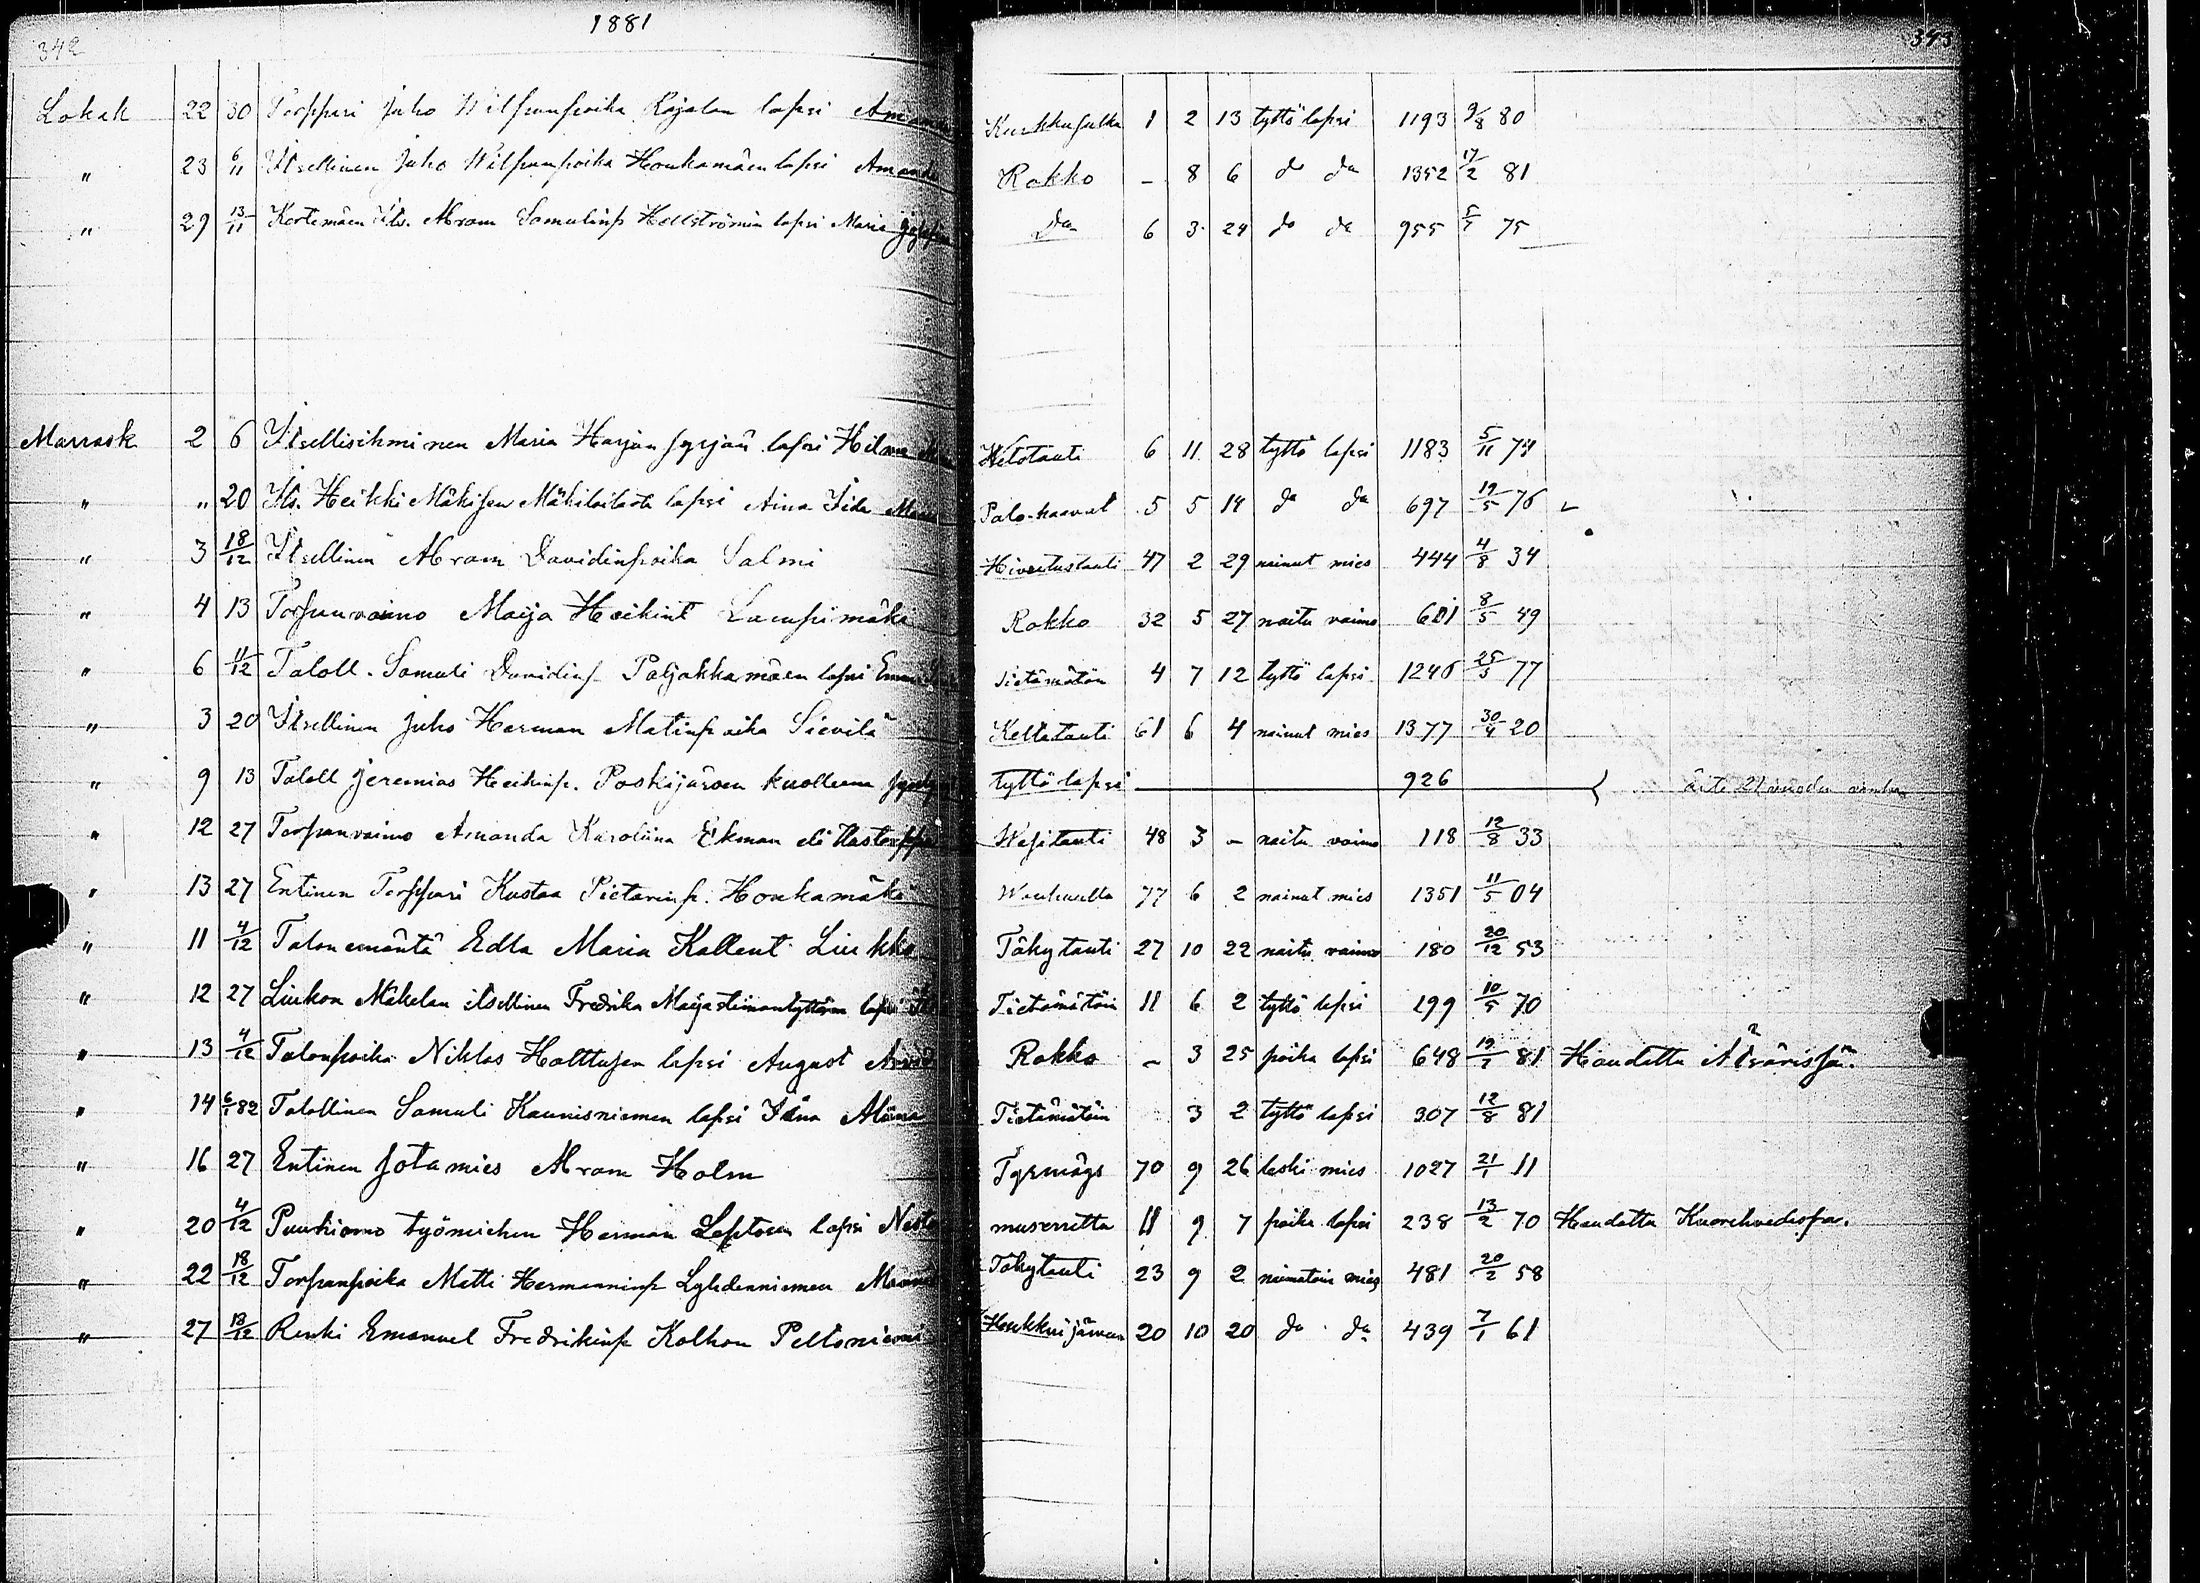 342 1881 343
Lokak 22 30 Torppari Juho Wilpunpoika Rajalan lapsi Amanda Kurkkusulku 1 2 13 tyttö lapsi 1193 9/8 80
" 23 6/11 Itsellinen Juho Wilpunpoika Honkamäen lapsi Amanda Rokko – 8 6 do do 1352 17/2 81
" 29 13/11 Kortemäen Its. Abram Samulinp Hellströmin lapsi Maria Do 6 3 24 do do 955 5/7 75
Marrask 2 6 Itsellisihminen Maria Harjun lapsi Hilma Wetotauti 6 11 28 tyttö lapsi 1183 5/11 74
" " 20 Its. Heikki Mäkisen lapsi Aina Iida 5 5 14 do do 697 19/5 76
" 3 18/12 Itsellinen Abram Davidinpoika Salmi Hivutustauti 47 2 29 nainut mies 444 4/8 34
" 4 13 Torpanvaimo Maija Heikint Lampimäki Rokko 32 5 27 naitu vaimo 601 8/5 49
" 6 11/12 Taloll. Samuli Davidinp Paljakkamäen lapsi Emma Tietämätön 4 7 12 tyttö lapsi 1246 25/3 77
" 3 20 Itsellinen Juho Herman Matinpoika Sievilä Keltatauti 61 6 4 nainut mies 1377 30/4 20
" 9 13 Taloll Jeremias Heikinp. Poskijärven kuolleena tyttö lapsi 926 äiti 21 vuoden
" 12 27 Torpanvaimo Amanda Karoliina Ekman eli Wesitauti 48 3 – naitu vaimo 118 12/8 33
" 13 27 Entinen Torppari Kustaa Pietarinp. Honkamäki Wanhuutta 77 6 2 nainut mies 1351 11/5 04
" 11 4/12 Talonemäntä Edla Maria Kallent Liukko Tähytauti 27 10 22 naitu vaimo 180 20/12 53
" 12 27 Liukon Mäkelän itsellinen Fredrika Maija lapsi Tietämätöin 11 6 2 tyttö lapsi 199 10/5 70
" 13 4/12 Talonpoika Niklas Holttusen lapsi August Rokko – 3 25 poika lapsi 648 19/7 81 Haudattu Ätsärissä.
" 14 6/1 82 Talollinen Samuli Kaunisniemen lapsi Alina Tietämätöin 3 2 tyttö lapsi 307 12/8 81
" 16 27 Entinen Sotamies Abram Holm 70 9 26 leski mies 1027 21/1 11
" 20 4/12 työmiehen Herman Leptosen lapsi muserretta 11 9 7 poika lapsi 238 13/2 70 Haudattu
" 22 18/12 Torpanpoika Matti Hermanninp Lyhdenniemen Tähytauti 23 9 2 naimatoin mies 481 20/2 58
" 27 18/12 Renki Emanuel Fredrikinp Kolhon Peltoniemi Hukkui järveen 20 10 20 do do 439 7/1 61